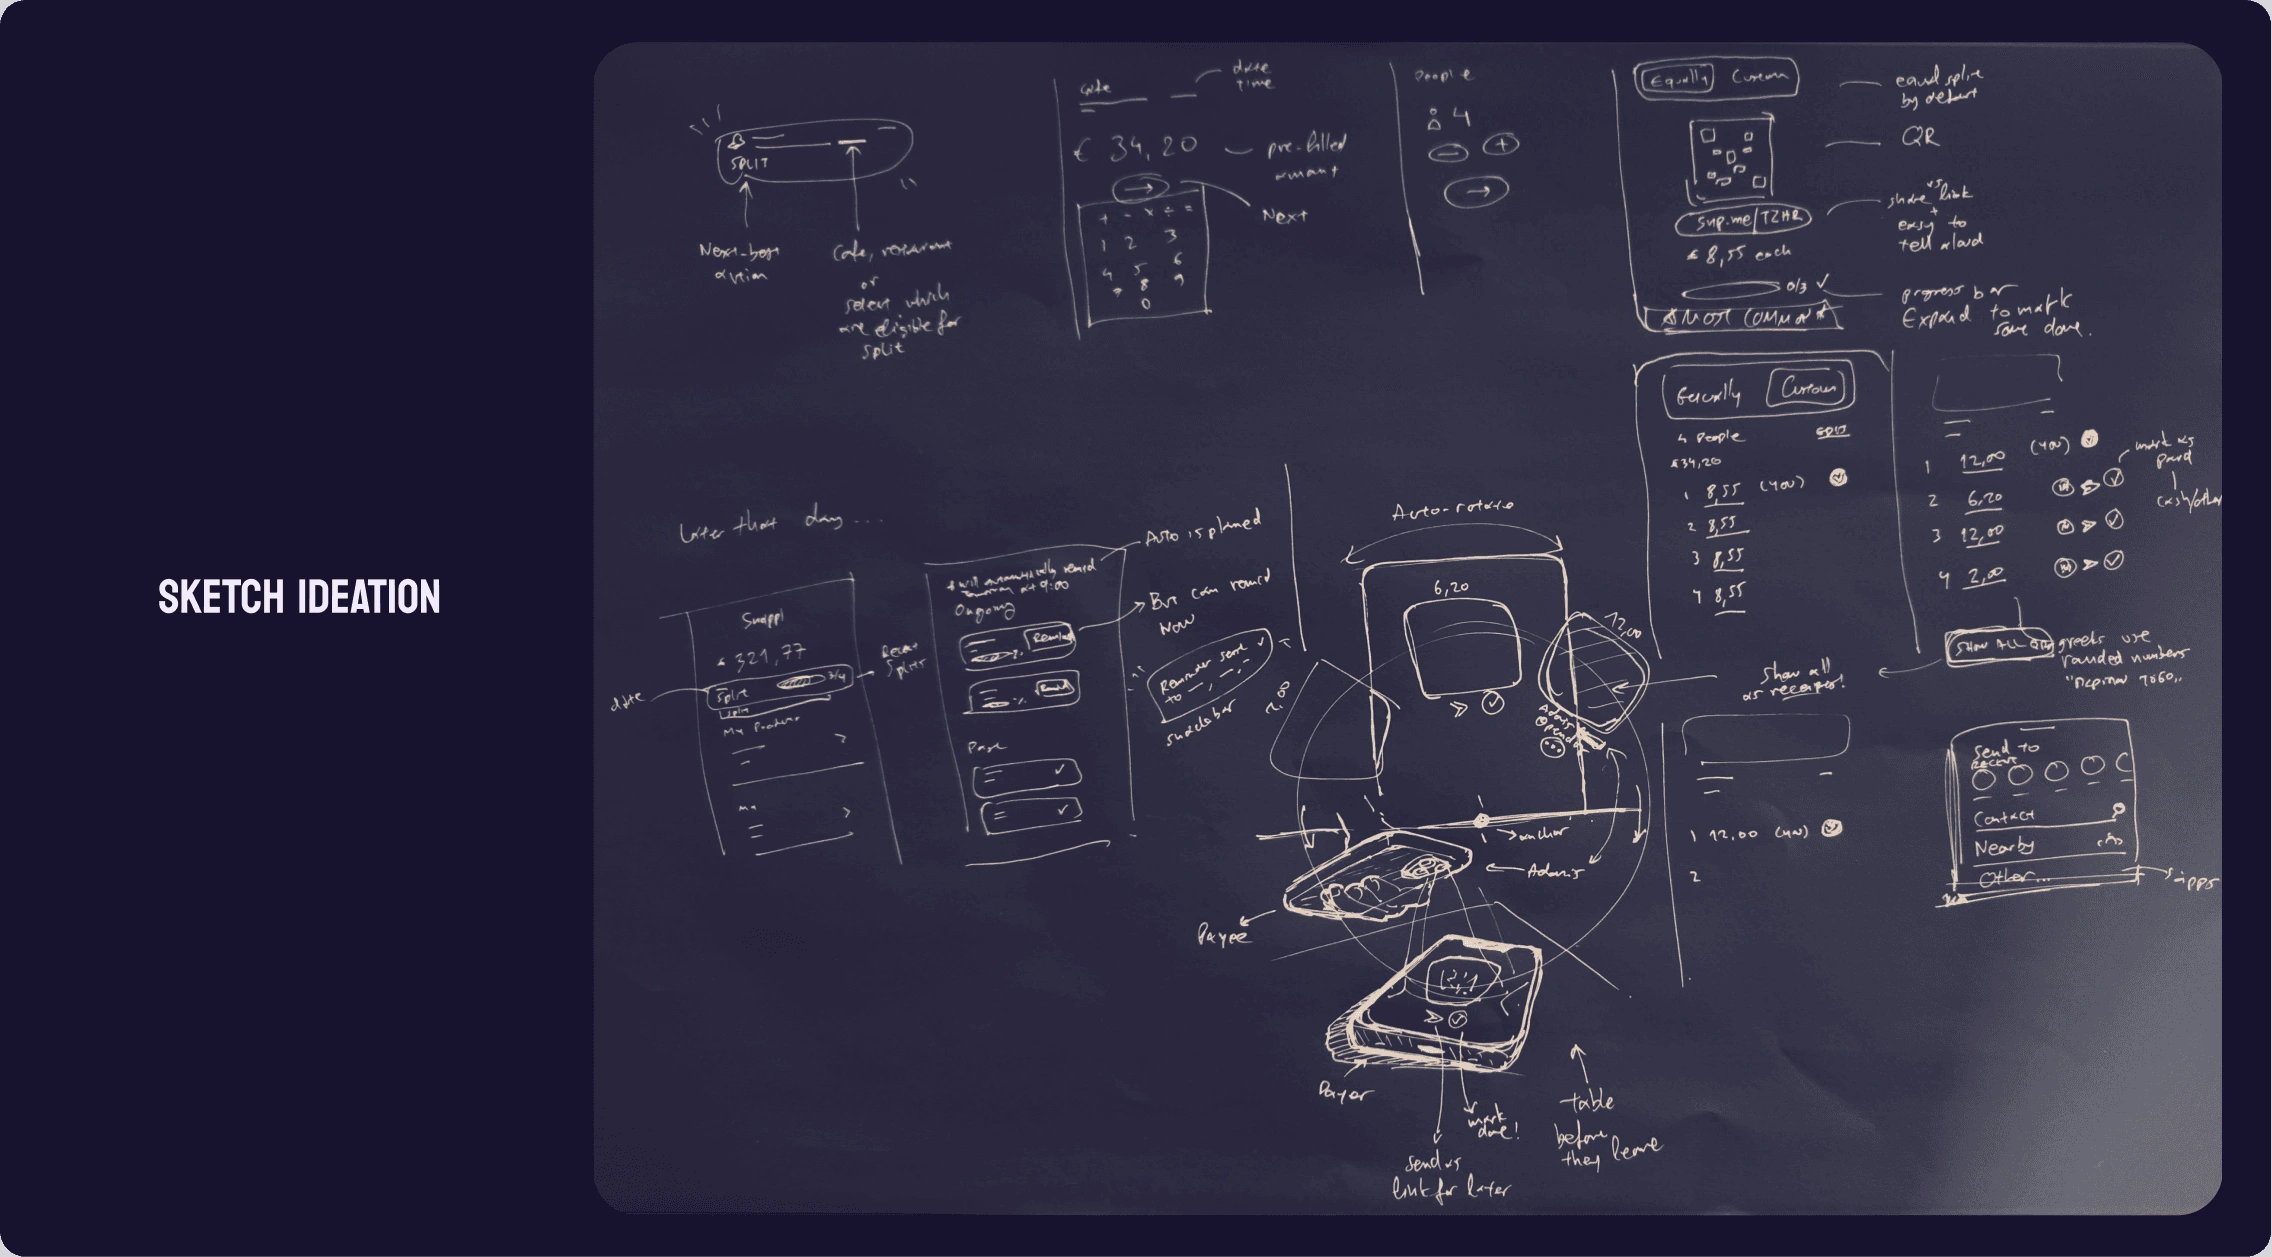 SKETCH IDEATION
SPLIT
Next-best
action
Cafe, restaurant
or
select which
are eligible for
split
cafe
date
time
€ 34,20
pre-filled
amount
→
Next
+ - × ÷ =
1 2 3
4 5 6
7 8 9
0
People
4
- +
→
Equally Custom
equal split
by default
QR
sup.me/TZHR
share link
+
easy to
tell aloud
€ 8,55 each
0/3 ✓
progress bar
Expand to mark
some done.
MOST COMMON
Equally Custom
4 People
€34,20
1 8,55 (YOU)
2 8,55
3 8,55
4 8,55
1 12,00 (YOU)
2 6,20
3 12,00
4 2,00
mark as
paid
cash/other
SHOW ALL
greeks use
rounded numbers
Show all
as receipts!
Later that day...
Snappi
€ 321,77
Split 3/4
date
Recent
Splits
My Products
I will automatically remind
tomorrow at 9:00
Ongoing
Remind
Remind
Past
Auto is planned
But can remind
Now
Reminder sent ✓
to
snackbar
Auto-rotate
6,20
12,00
anchor
Adonis
Payee
Payer
mark
done!
send as
link for later
table
before
they leave
1 12,00 (YOU)
2
Send to
RECENT
Contact
Nearby
Other...
apps